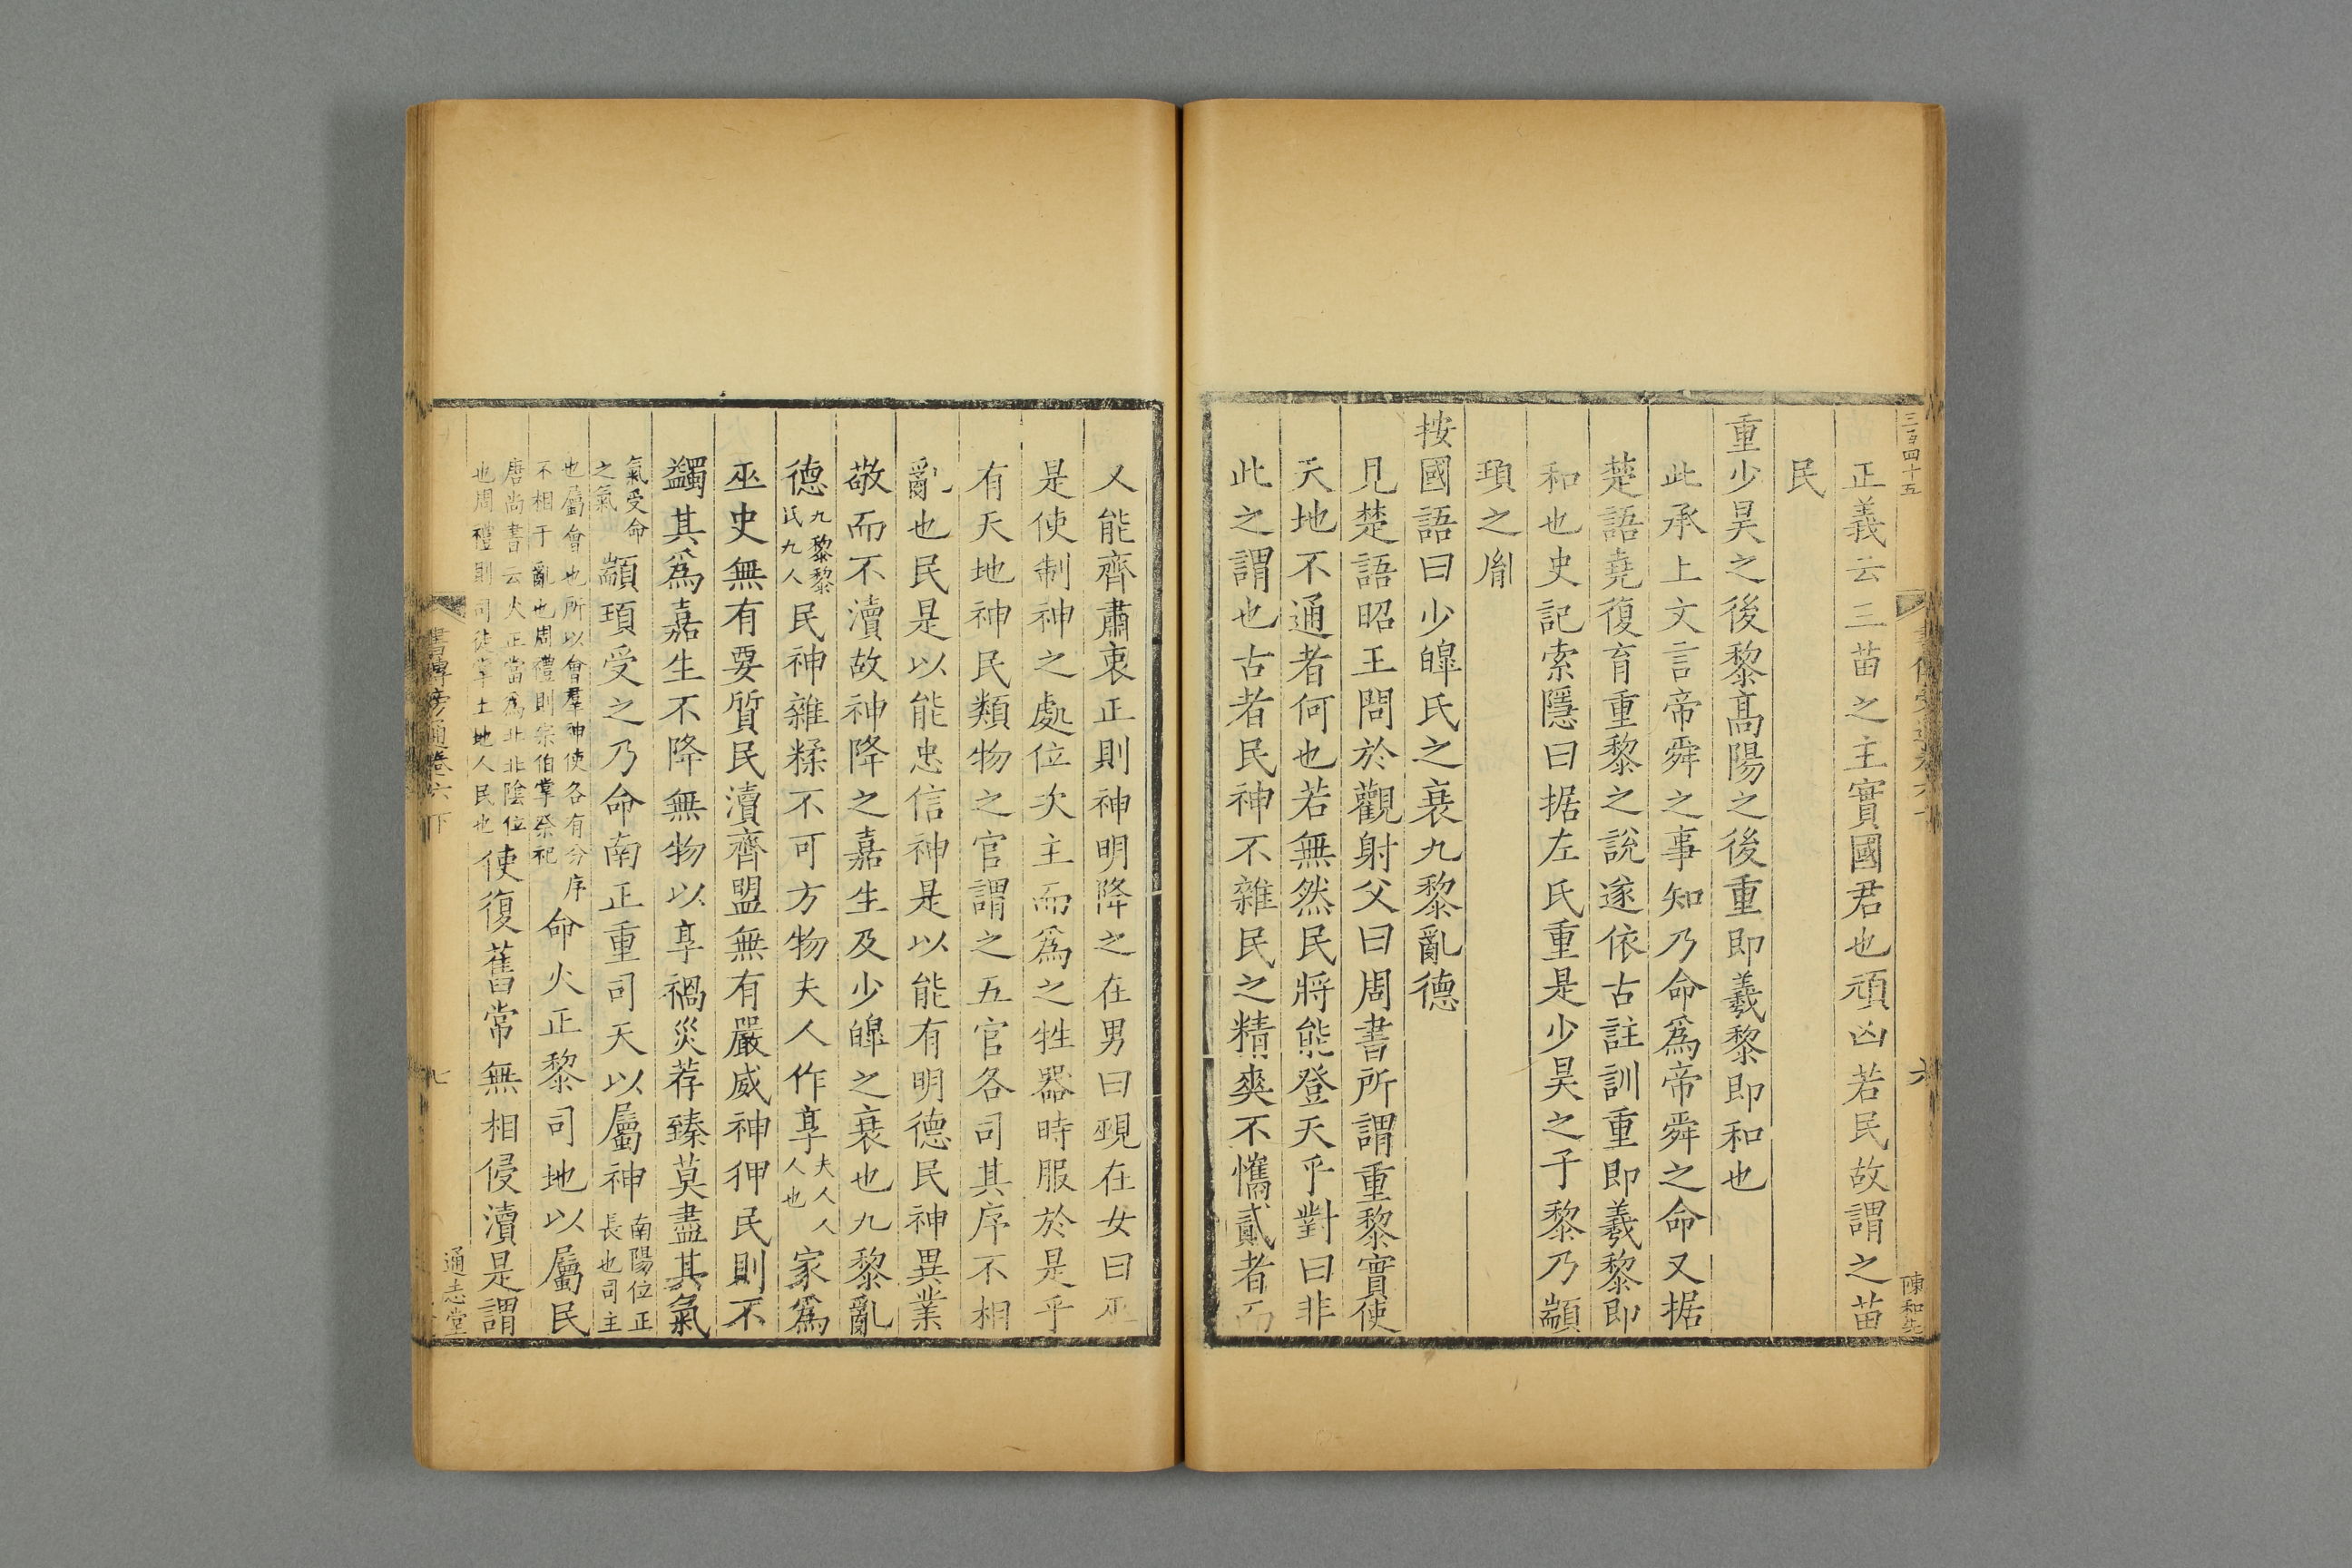 三百四十五
陳和先
正義云三苗之主實國君也頑凶若民故謂之苗
民
重少昊之後黎髙陽之後重即羲黎即和也
此承上文言帝舜之事知乃命爲帝舜之命又据
楚語堯復育重黎之說遂依古註訓重即羲黎即
和也史記索隱曰据左氏重是少昊之子黎乃顓
頊之胤
按國語曰少皥氏之衰九黎亂德
見楚語昭王問於觀射父曰周書所謂重黎實使
天地不通者何也若無然民將能登天乎對曰非
此之謂也古者民神不雜民之精爽不懦貳者而
又能齊肅衷正則神明降之在男曰覡在女曰巫
是使制神之處位次主而爲之牲器時服於是乎
有天地神民類物之官謂之五官各司其序不相
亂也民是以能忠信神是以能有明德民神異業
敬而不瀆故神降之嘉生及少皥之衰也九黎亂
德九黎黎氏九人民神雜糅不可方物夫人作享夫人人人也家爲
巫史無有要質民瀆齊盟無有嚴威神狎民則不
蠲其爲嘉生不降無物以享禍災荐臻莫盡其氣
氣受命之氣顓頊受之乃命南正重司天以屬神南陽位正長也司主
也屬會也所以會羣神使各有分序不相干亂也周禮則宗伯掌祭祀命火正黎司地以屬民
唐尚書云火正當爲北北陰位也周禮則司徒掌土地人民也使復舊常無相侵瀆是謂
書傳旁通卷六下
七
通志堂